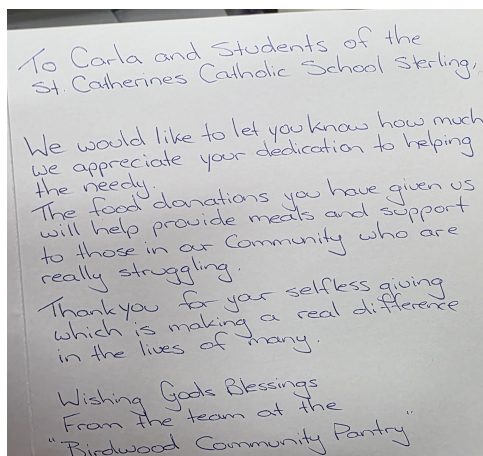 To Carla and Students of the
St. Catherines Catholic School Sterling,
We would like to let you know how much
we appreciate your dedication to helping
the needy.
The food donations you have given us
will help provide meals and support
to those in our Community who are
really struggling.
Thankyou for your selfless giving
which is making a real difference
in the lives of many.
Wishing Gods Blessings
From the team at the
"Birdwood Community Pantry"